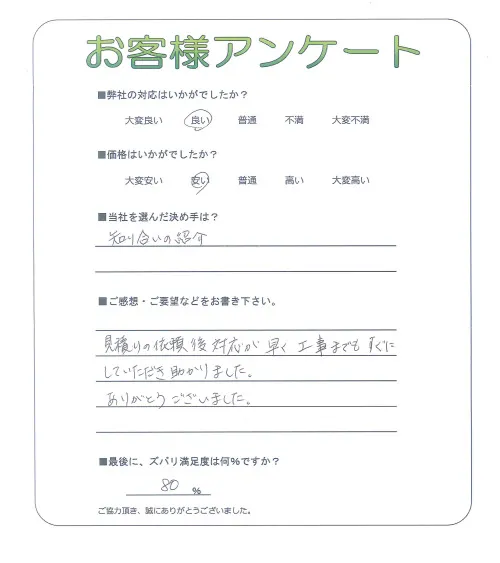 お客様アンケート
■弊社の対応はいかがでしたか?
大変良い 良い 普通 不満 大変不満
■価格はいかがでしたか?
大変安い 安い 普通 高い 大変高い
■当社を選んだ決め手は?
知り合いの紹介
■ご感想・ご要望などをお書き下さい。
見積りの依頼後対応が早く工事までもすぐに
していただき助かりました。
ありがとうございました。
■最後に、ズバリ満足度は何%ですか?
80 %
ご協力頂き、誠にありがとうございました。